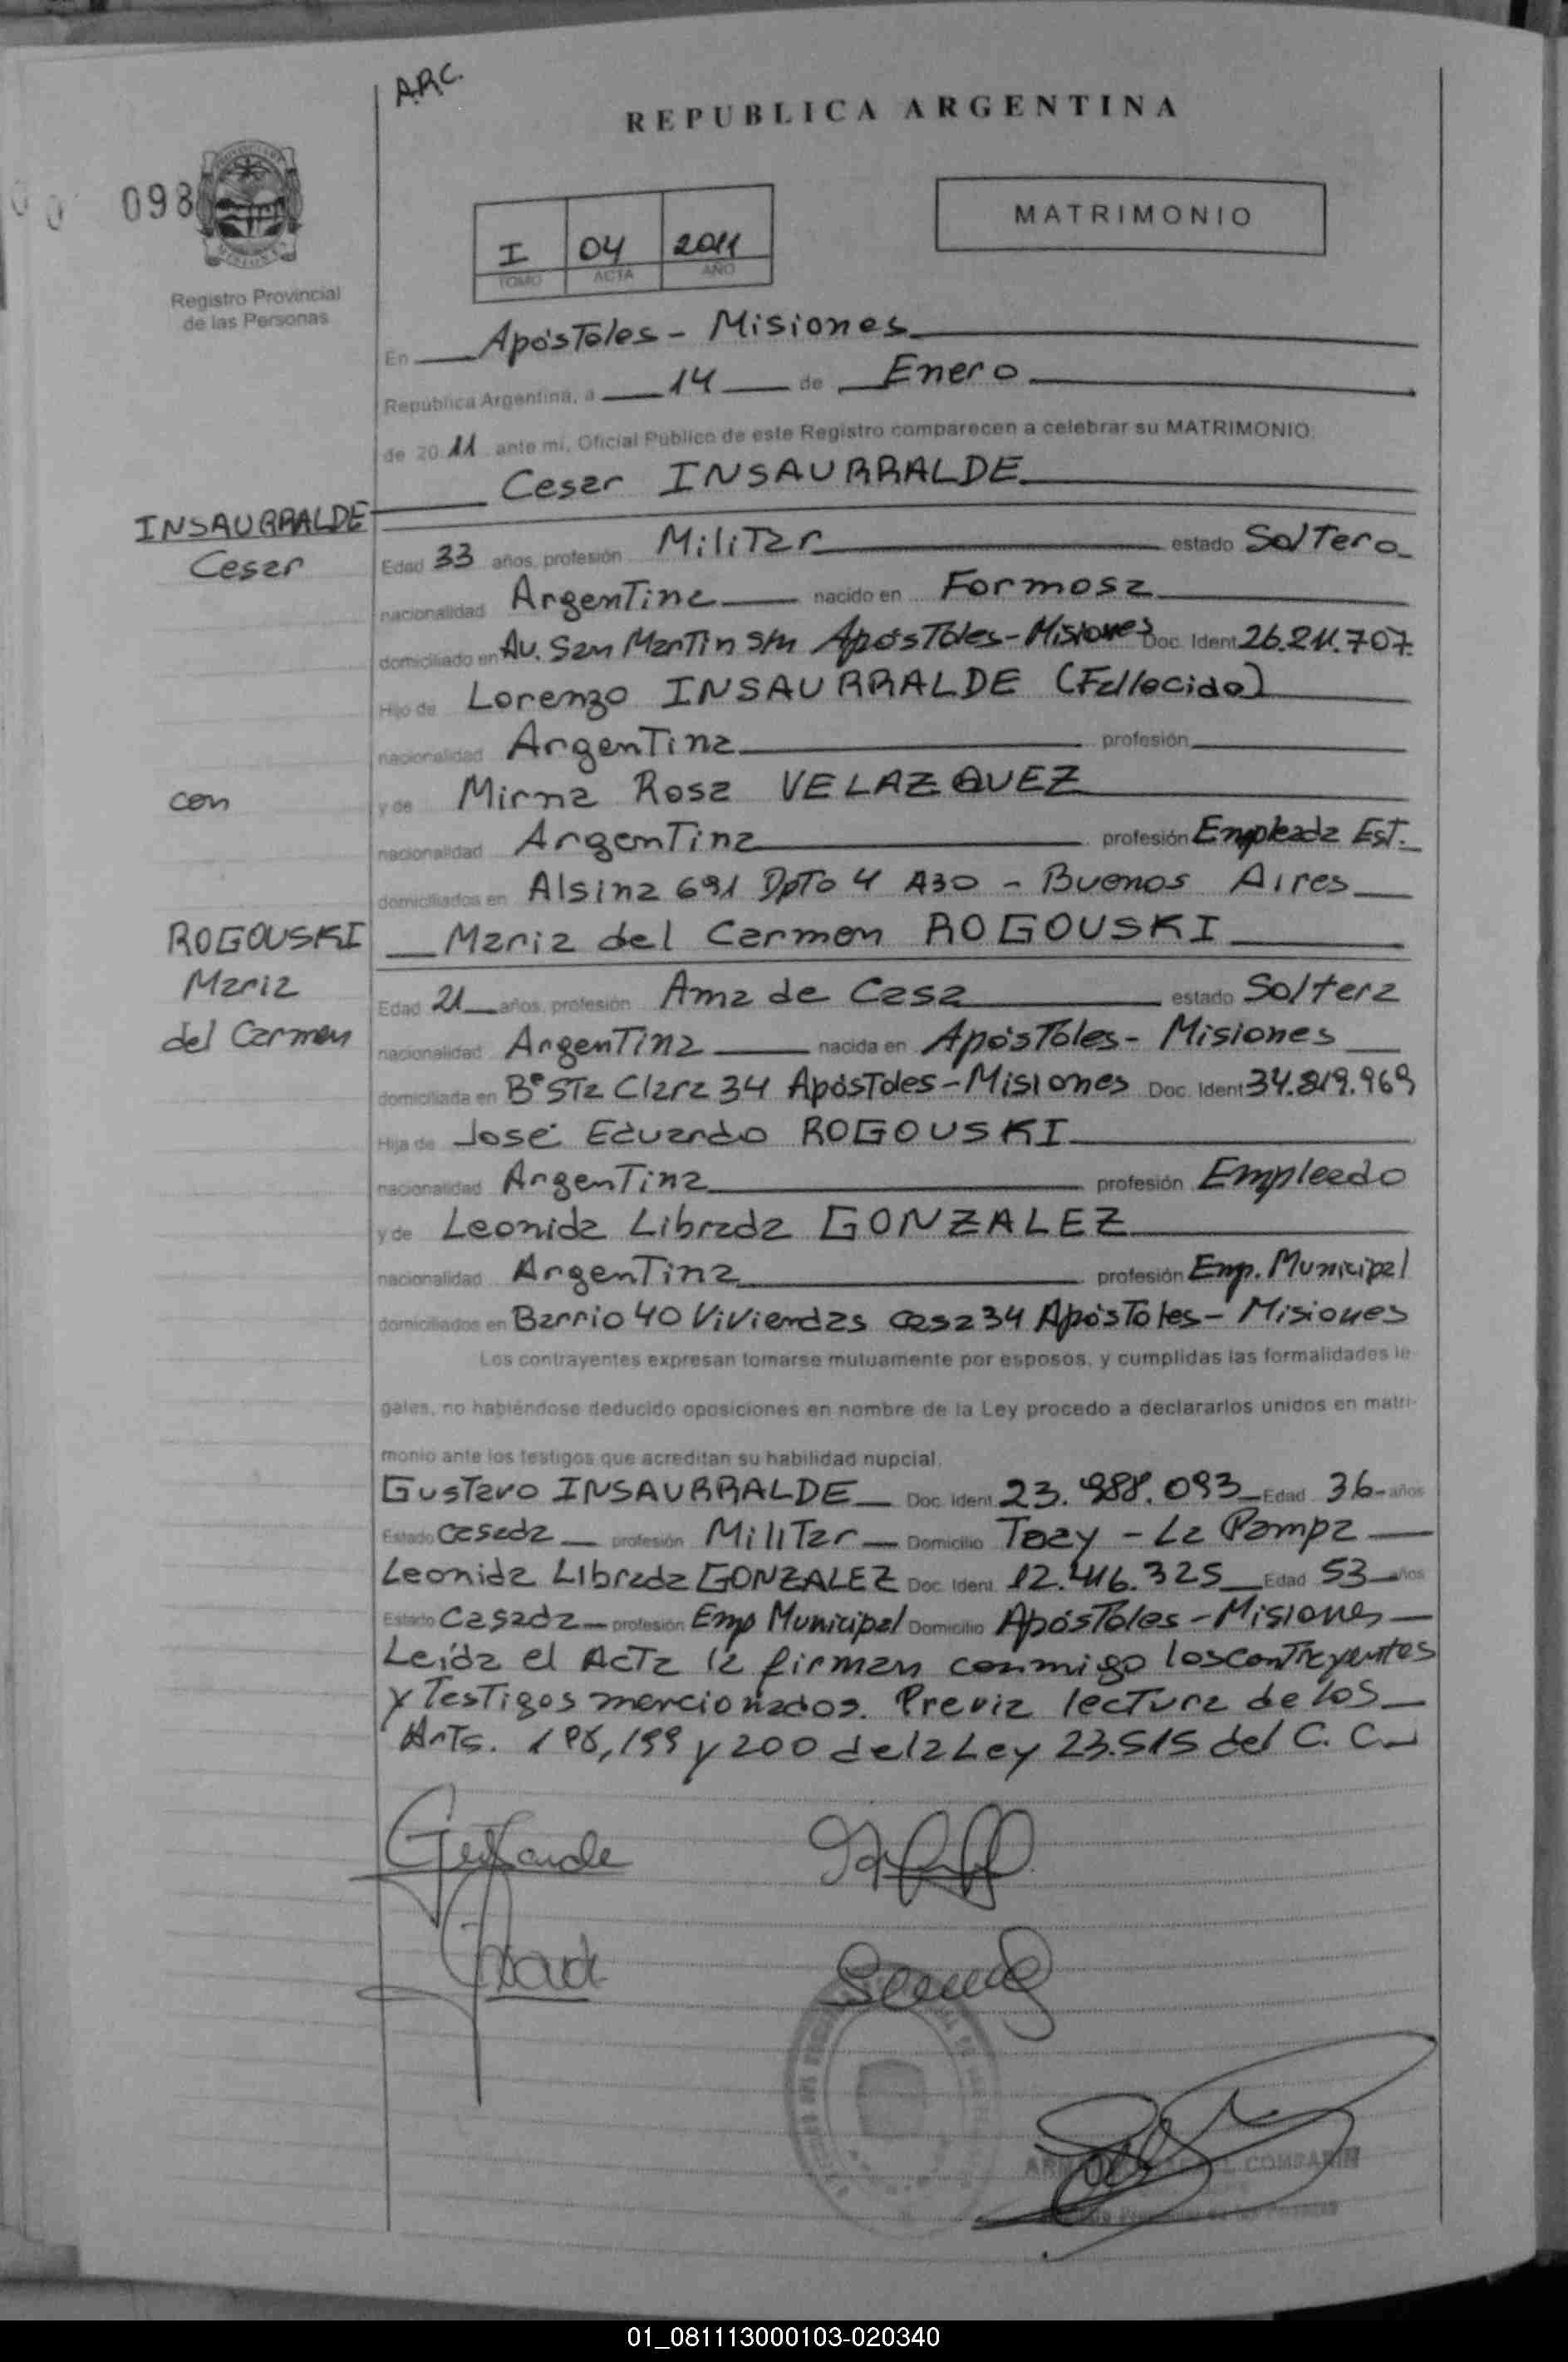 A.R.C.
REPUBLICA ARGENTINA
098
MATRIMONIO
I 04 2011
TOMO ACTA AÑO
Registro Provincial
de las Personas
En Apóstoles - Misiones
República Argentina, a 14 de Enero
de 2011 ante mi, Oficial Publico de este Registro comparecen a celebrar su MATRIMONIO:
Cesar INSAURRALDE
INSAURRALDE
Cesar
Edad 33 años, profesión Militar estado Soltero
nacionalidad Argentina nacido en Formosa
domiciliado en Av. San Martin s/n Apóstoles - Misiones Doc. Ident 26.211.707
Hijo de Lorenzo INSAURRALDE (Fallecido)
nacionalidad Argentina profesión
con
y de Mirna Rosa VELAZQUEZ
nacionalidad Argentina profesión Empleada Est.
domiciliados en Alsina 691 Dpto 4 A30 - Buenos Aires
ROGOUSKI
Maria
del Carmen
Maria del Carmen ROGOUSKI
Edad 21 años, profesión Ama de Casa estado Soltera
nacionalidad Argentina nacida en Apóstoles - Misiones
domiciliada en Bº Sta Clara 34 Apóstoles - Misiones Doc. Ident 34.819.969
Hija de José Eduardo ROGOUSKI
nacionalidad Argentina profesión Empleado
y de Leonida Librada GONZALEZ
nacionalidad Argentina profesión Emp. Municipal
domiciliados en Barrio 40 Viviendas casa 34 Apóstoles - Misiones
Los contrayentes expresan tomarse mutuamente por esposos, y cumplidas las formalidades le-
gales, no habiéndose deducido oposiciones en nombre de la Ley procedo a declararlos unidos en matri-
monio ante los testigos que acreditan su habilidad nupcial.
Gustavo INSAURRALDE Doc. Ident. 23.988.093 Edad 36 años
Estado Casada profesión Militar Domicilio Toay - La Pampa
Leonida Librada GONZALEZ Doc. Ident. 12.416.325 Edad 53 años
Estado Casada profesión Emp Municipal Domicilio Apóstoles - Misiones
Leída el Acta la firman conmigo los contrayentes
y Testigos mencionados. Previa lectura de los
Arts. 198, 199 y 200 de la Ley 23.515 del C. C.
01_081113000103-020340